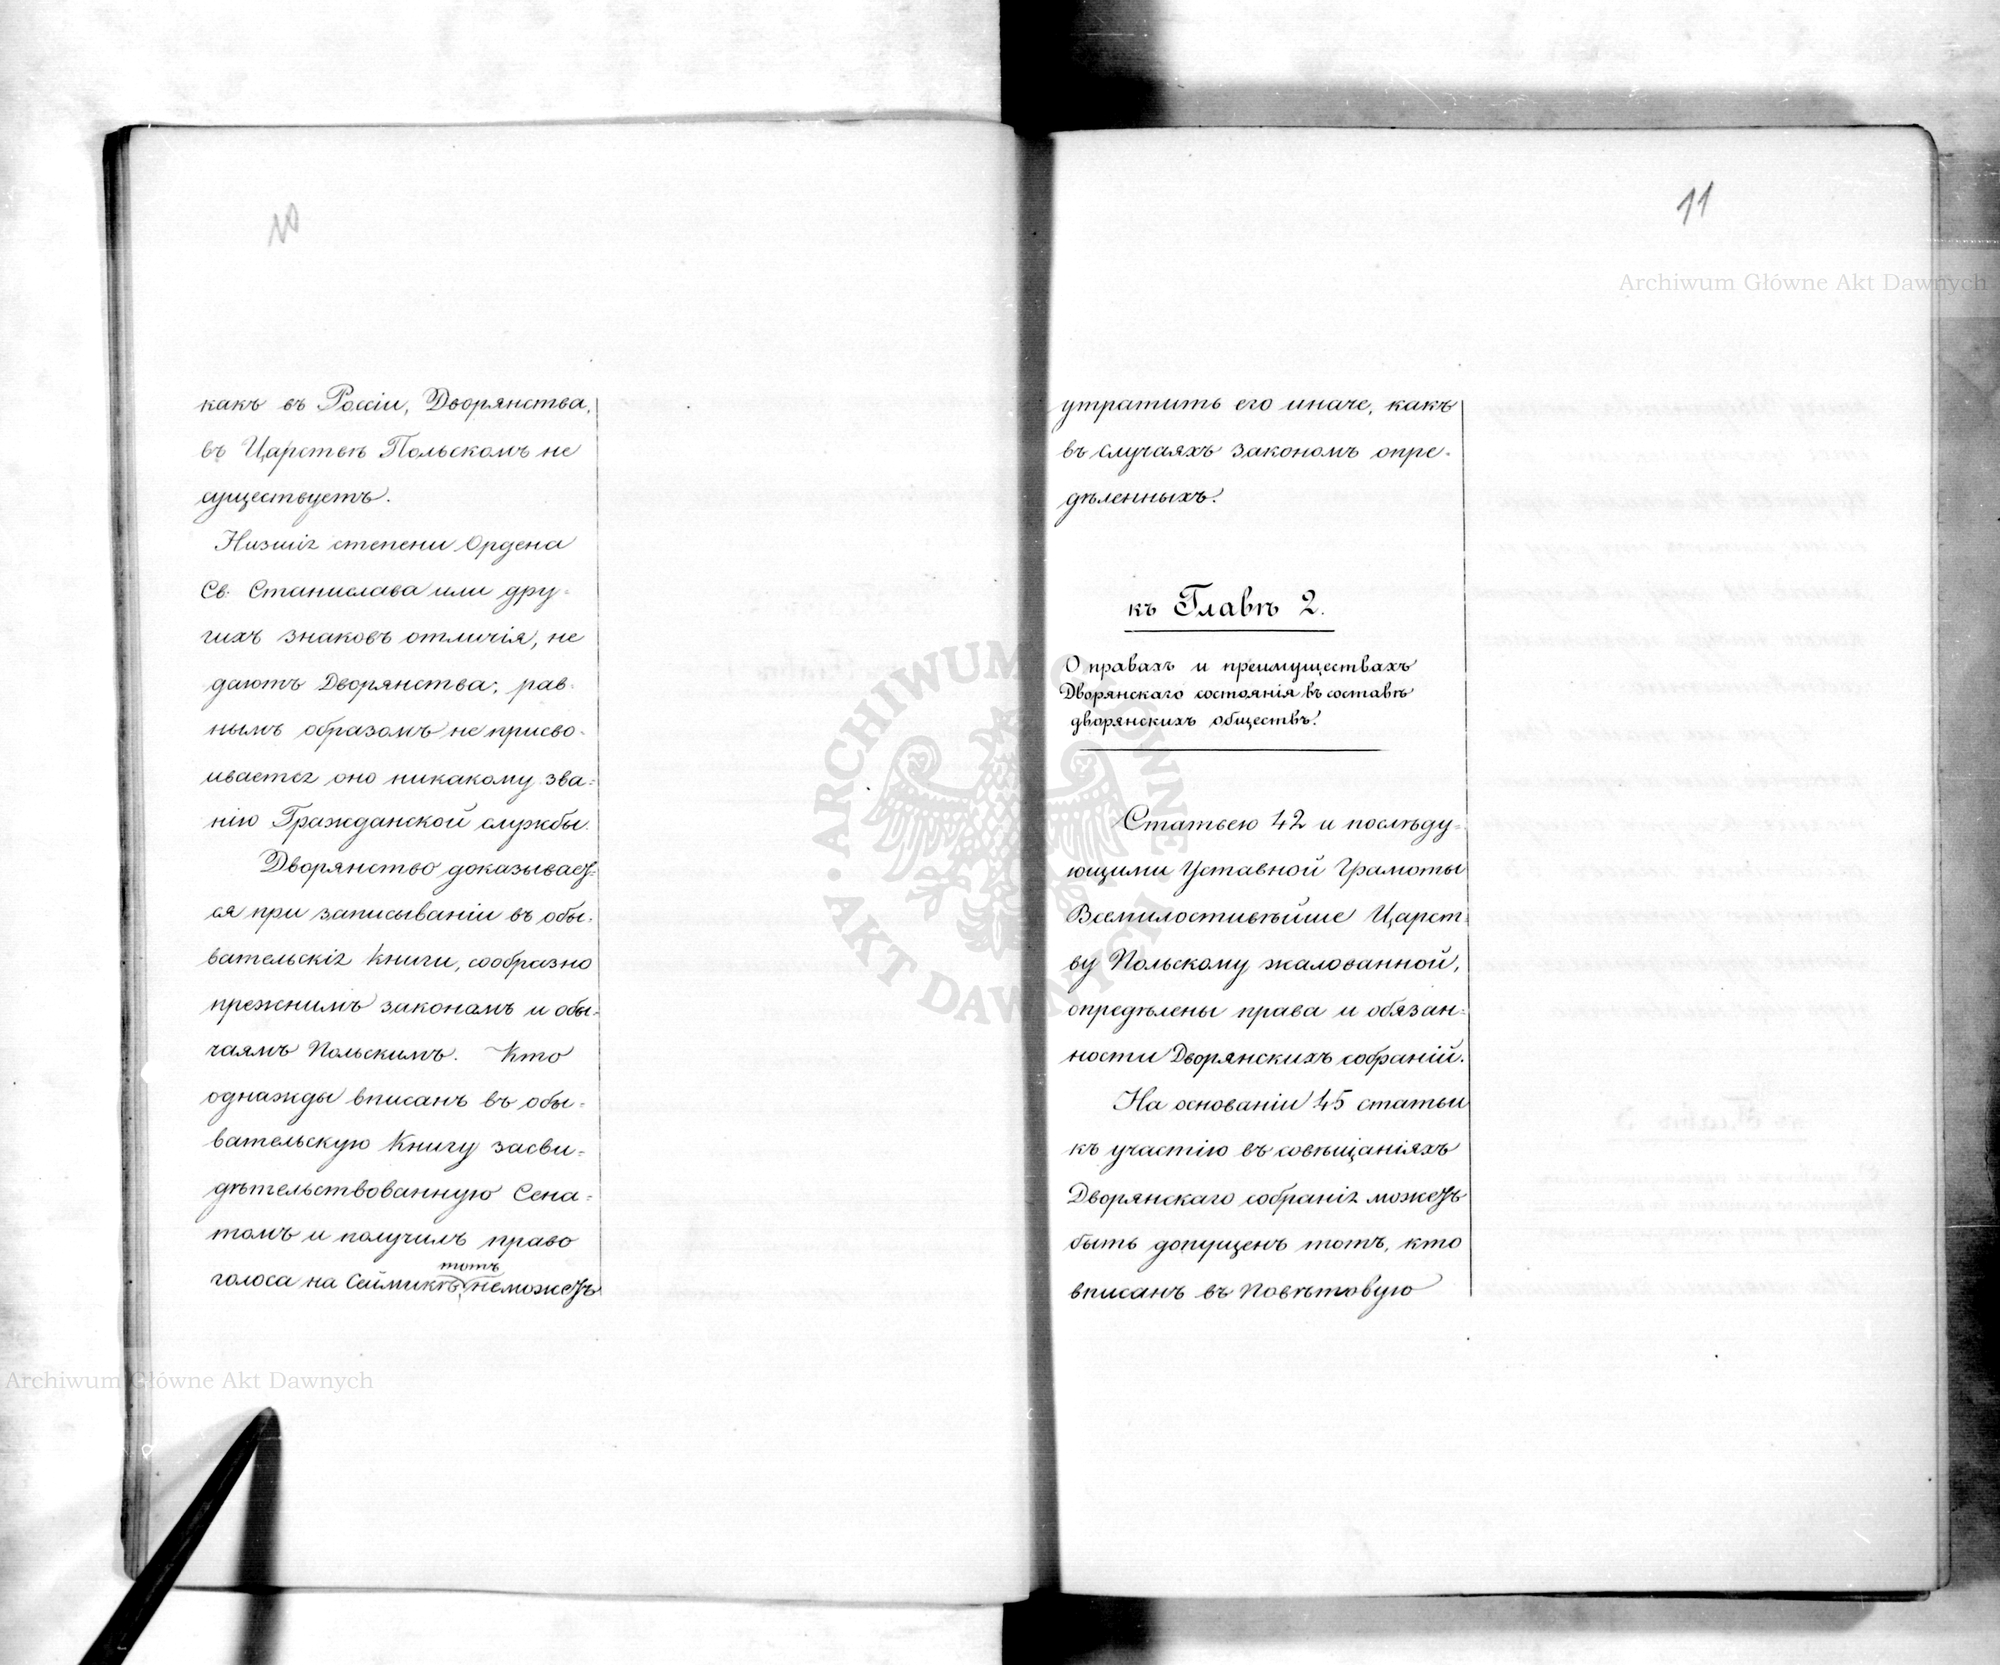 10
какъ въ Россіи, Дворянства,
въ Царствѣ Польскомъ не
существуетъ.
Низшія степени Ордена
Св. Станислава или дру-
гихъ знаковъ отличія, не
даютъ Дворянства; рав-
нымъ образомъ не присво-
ивается оно никакому зва-
нію Гражданской службы.
Дворянство доказывает-
ся при записываніи въ обы-
вательскія книги, сообразно
прежнимъ законамъ и обы-
чаямъ Польскимъ. Кто
однажды вписанъ въ обы-
вательскую Книгу засви-
дѣтельствованную Сена-
томъ и получилъ право
тотъ
голоса на Сеймикѣ, не можетъ
11
утратить его иначе, какъ
въ случаяхъ закономъ опре-
дѣленныхъ.
къ Главѣ 2.
О правахъ и преимуществахъ
Дворянскаго состоянія въ составѣ
дворянскихъ обществъ.
Статьею 42 и послѣду-
ющими Уставной Грамоты
Всемилостивѣйше Царст-
ву Польскому жалованной,
опредѣлены права и обязан-
ности Дворянскихъ собраній.
На основаніи 45 статьи
къ участію въ совѣщаніяхъ
Дворянскаго собранія можетъ
быть допущенъ тотъ, кто
вписанъ въ Повѣтовую
Archiwum Główne Akt Dawnych
Archiwum Główne Akt Dawnych
ARCHIWUM GŁÓWNE · AKT DAWNYCH ·